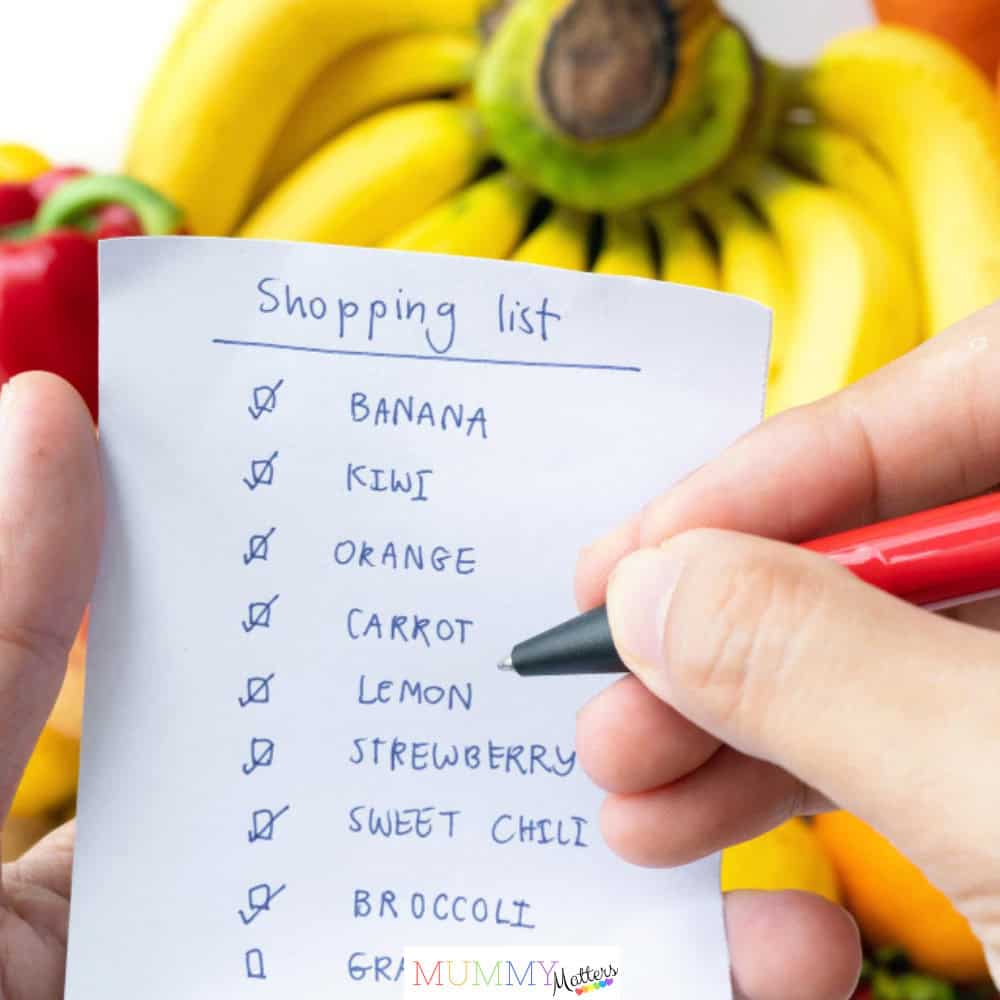 Shopping list
BANANA
KIWI
ORANGE
CARROT
LEMON
STREWBERRY
SWEET CHILI
BROCCOLI
MUMMY Matters